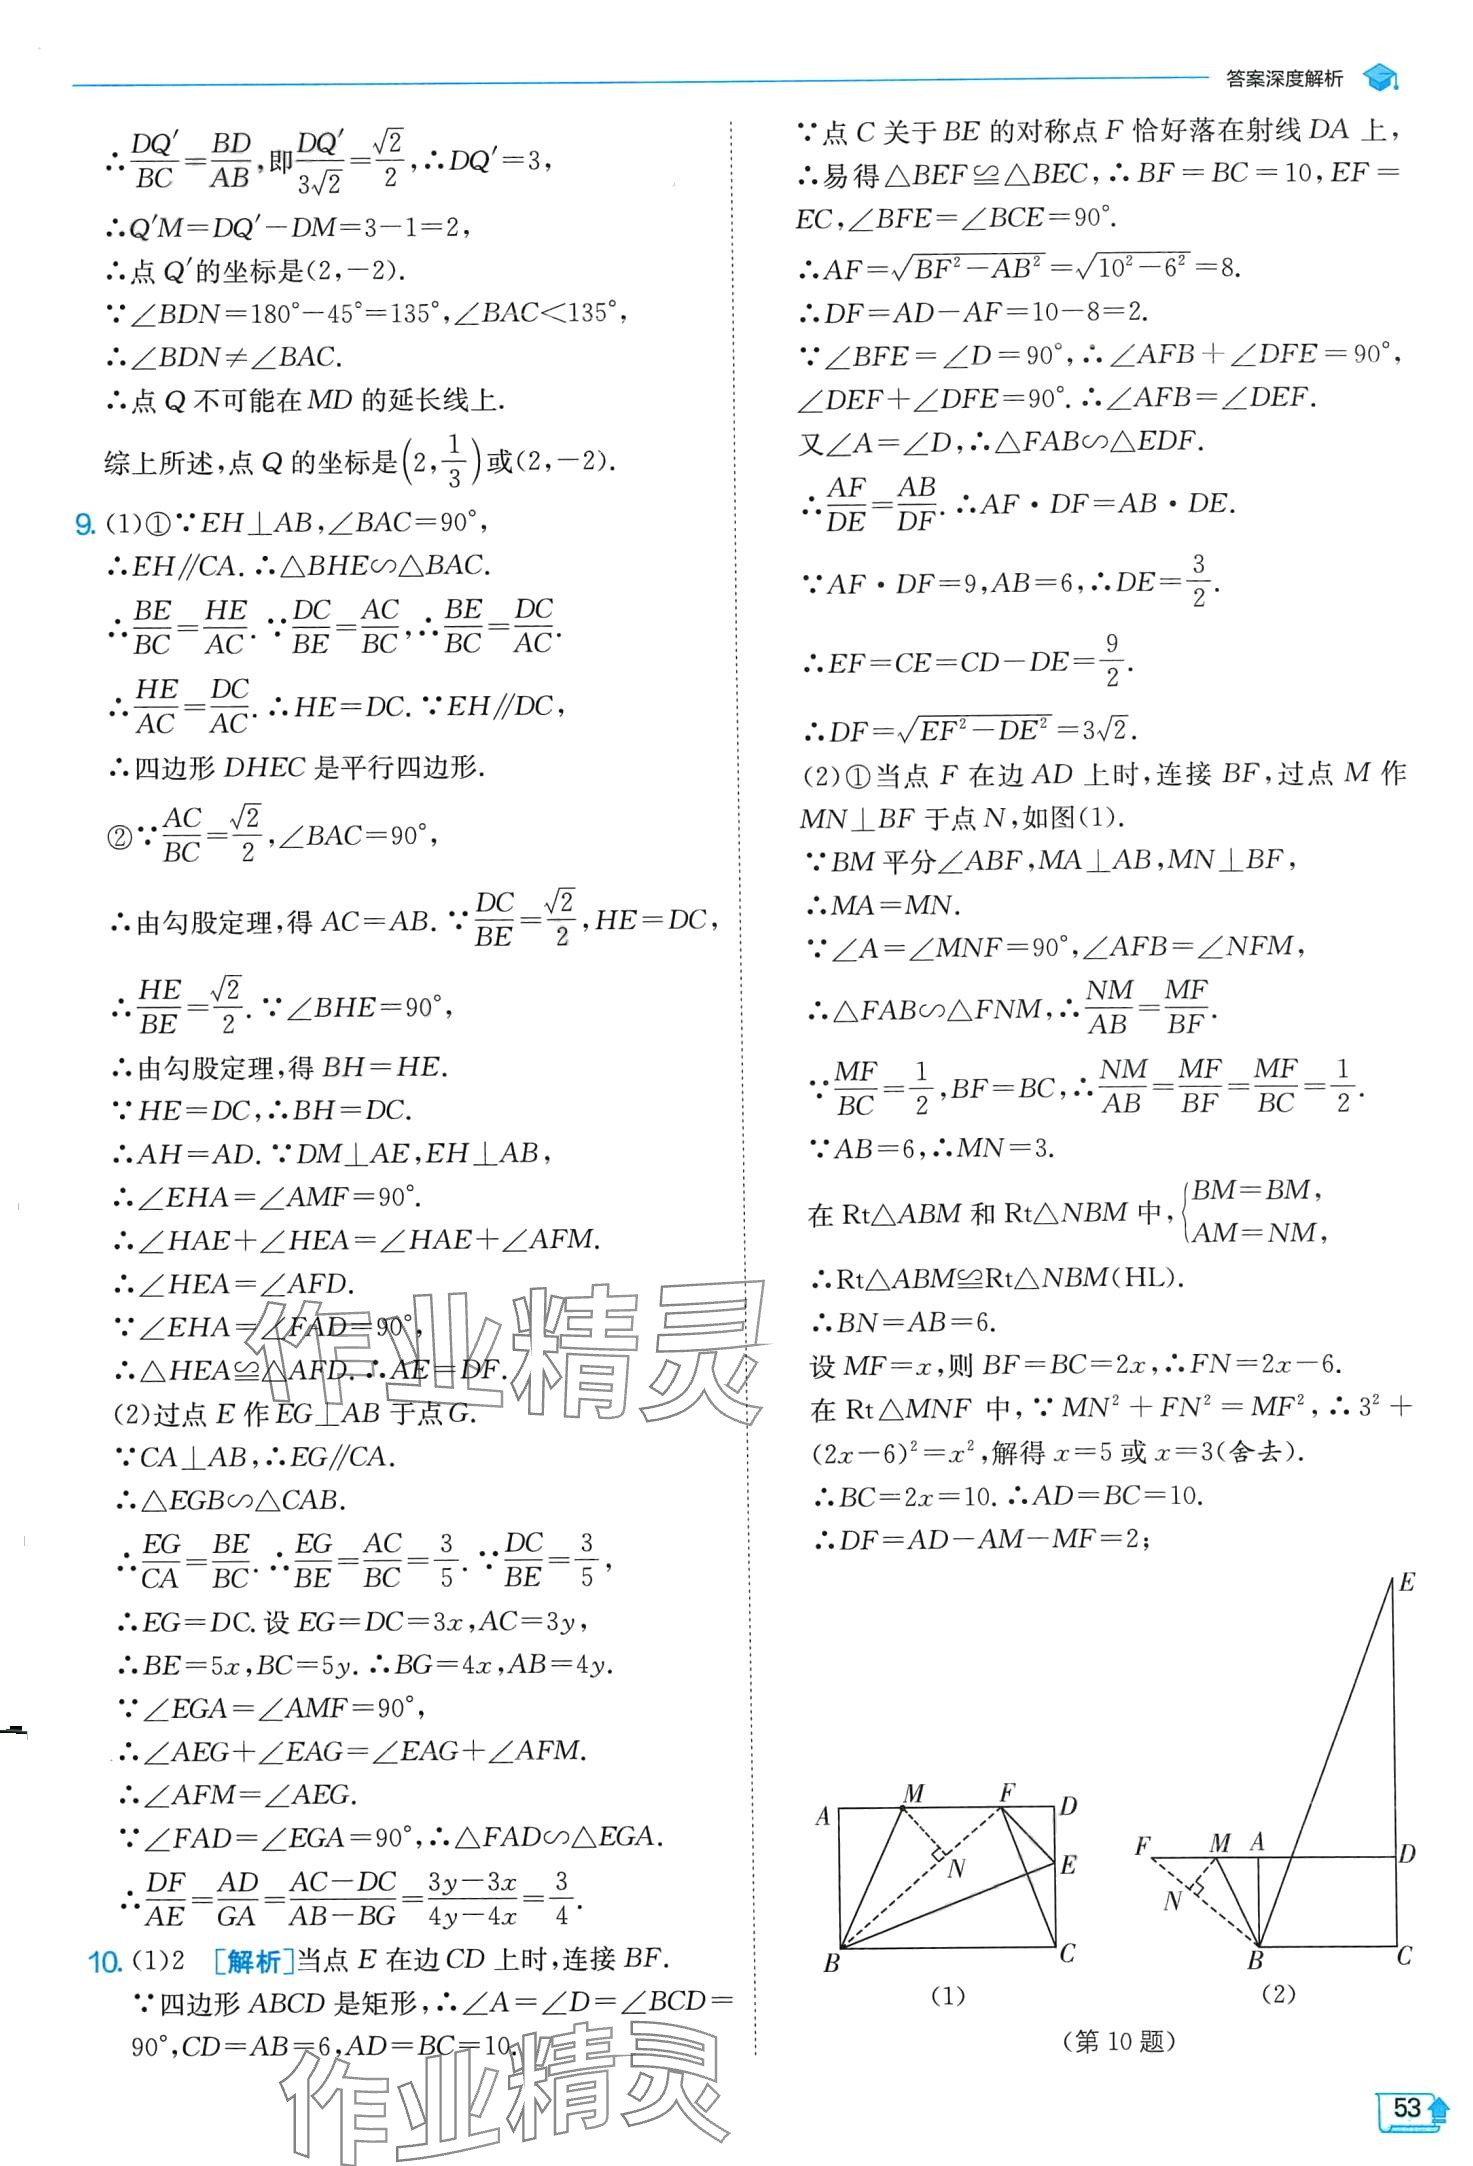 答案深度解析
∴DQ′/BC=BD/AB,即DQ′/3√2=√2/2,∴DQ′=3,
∴Q′M=DQ′-DM=3-1=2,
∴点 Q′的坐标是(2,-2).
∵∠BDN=180°-45°=135°,∠BAC<135°,
∴∠BDN≠∠BAC.
∴点 Q 不可能在 MD 的延长线上.
综上所述,点 Q 的坐标是(2,1/3)或(2,-2).
9. (1)①∵EH⊥AB,∠BAC=90°,
∴EH∥CA. ∴△BHE∽△BAC.
∴BE/BC=HE/AC. ∵DC/BE=AC/BC,∴BE/BC=DC/AC.
∴HE/AC=DC/AC. ∴HE=DC. ∵EH∥DC,
∴四边形 DHEC 是平行四边形.
②∵AC/BC=√2/2,∠BAC=90°,
∴由勾股定理,得 AC=AB. ∵DC/BE=√2/2,HE=DC,
∴HE/BE=√2/2. ∵∠BHE=90°,
∴由勾股定理,得 BH=HE.
∵HE=DC,∴BH=DC.
∴AH=AD. ∵DM⊥AE,EH⊥AB,
∴∠EHA=∠AMF=90°.
∴∠HAE+∠HEA=∠HAE+∠AFM.
∴∠HEA=∠AFD.
∵∠EHA=∠FAD=90°,
∴△HEA≌△AFD. ∴AE=DF.
(2)过点 E 作 EG⊥AB 于点 G.
∵CA⊥AB,∴EG∥CA.
∴△EGB∽△CAB.
∴EG/CA=BE/BC. ∴EG/BE=AC/BC=3/5. ∵DC/BE=3/5,
∴EG=DC. 设 EG=DC=3x,AC=3y,
∴BE=5x,BC=5y. ∴BG=4x,AB=4y.
∵∠EGA=∠AMF=90°,
∴∠AEG+∠EAG=∠EAG+∠AFM.
∴∠AFM=∠AEG.
∵∠FAD=∠EGA=90°,∴△FAD∽△EGA.
∴DF/AE=AD/GA=AC-DC/AB-BG=3y-3x/4y-4x=3/4.
10. (1)2 [解析]当点 E 在边 CD 上时,连接 BF.
∵四边形 ABCD 是矩形,∴∠A=∠D=∠BCD=
90°,CD=AB=6,AD=BC=10.
∵点 C 关于 BE 的对称点 F 恰好落在射线 DA 上,
∴易得△BEF≌△BEC,∴BF=BC=10,EF=
EC,∠BFE=∠BCE=90°.
∴AF=√BF²-AB²=√10²-6²=8.
∴DF=AD-AF=10-8=2.
∵∠BFE=∠D=90°,∴∠AFB+∠DFE=90°,
∠DEF+∠DFE=90°. ∴∠AFB=∠DEF.
又∠A=∠D,∴△FAB∽△EDF.
∴AF/DE=AB/DF. ∴AF·DF=AB·DE.
∵AF·DF=9,AB=6,∴DE=3/2.
∴EF=CE=CD-DE=9/2.
∴DF=√EF²-DE²=3√2.
(2)①当点 F 在边 AD 上时,连接 BF,过点 M 作
MN⊥BF 于点 N,如图(1).
∵BM 平分∠ABF,MA⊥AB,MN⊥BF,
∴MA=MN.
∵∠A=∠MNF=90°,∠AFB=∠NFM,
∴△FAB∽△FNM,∴NM/AB=MF/BF.
∵MF/BC=1/2,BF=BC,∴NM/AB=MF/BF=MF/BC=1/2.
∵AB=6,∴MN=3.
在 Rt△ABM 和 Rt△NBM 中,{BM=BM,
AM=NM,
∴Rt△ABM≌Rt△NBM(HL).
∴BN=AB=6.
设 MF=x,则 BF=BC=2x,∴FN=2x-6.
在 Rt△MNF 中,∵MN²+FN²=MF²,∴3²+
(2x-6)²=x²,解得 x=5 或 x=3(舍去).
∴BC=2x=10. ∴AD=BC=10.
∴DF=AD-AM-MF=2;
A M F D
N E
B C
(1)
E
F M A D
N
B C
(2)
(第 10 题)
53
作业精灵
作业精灵